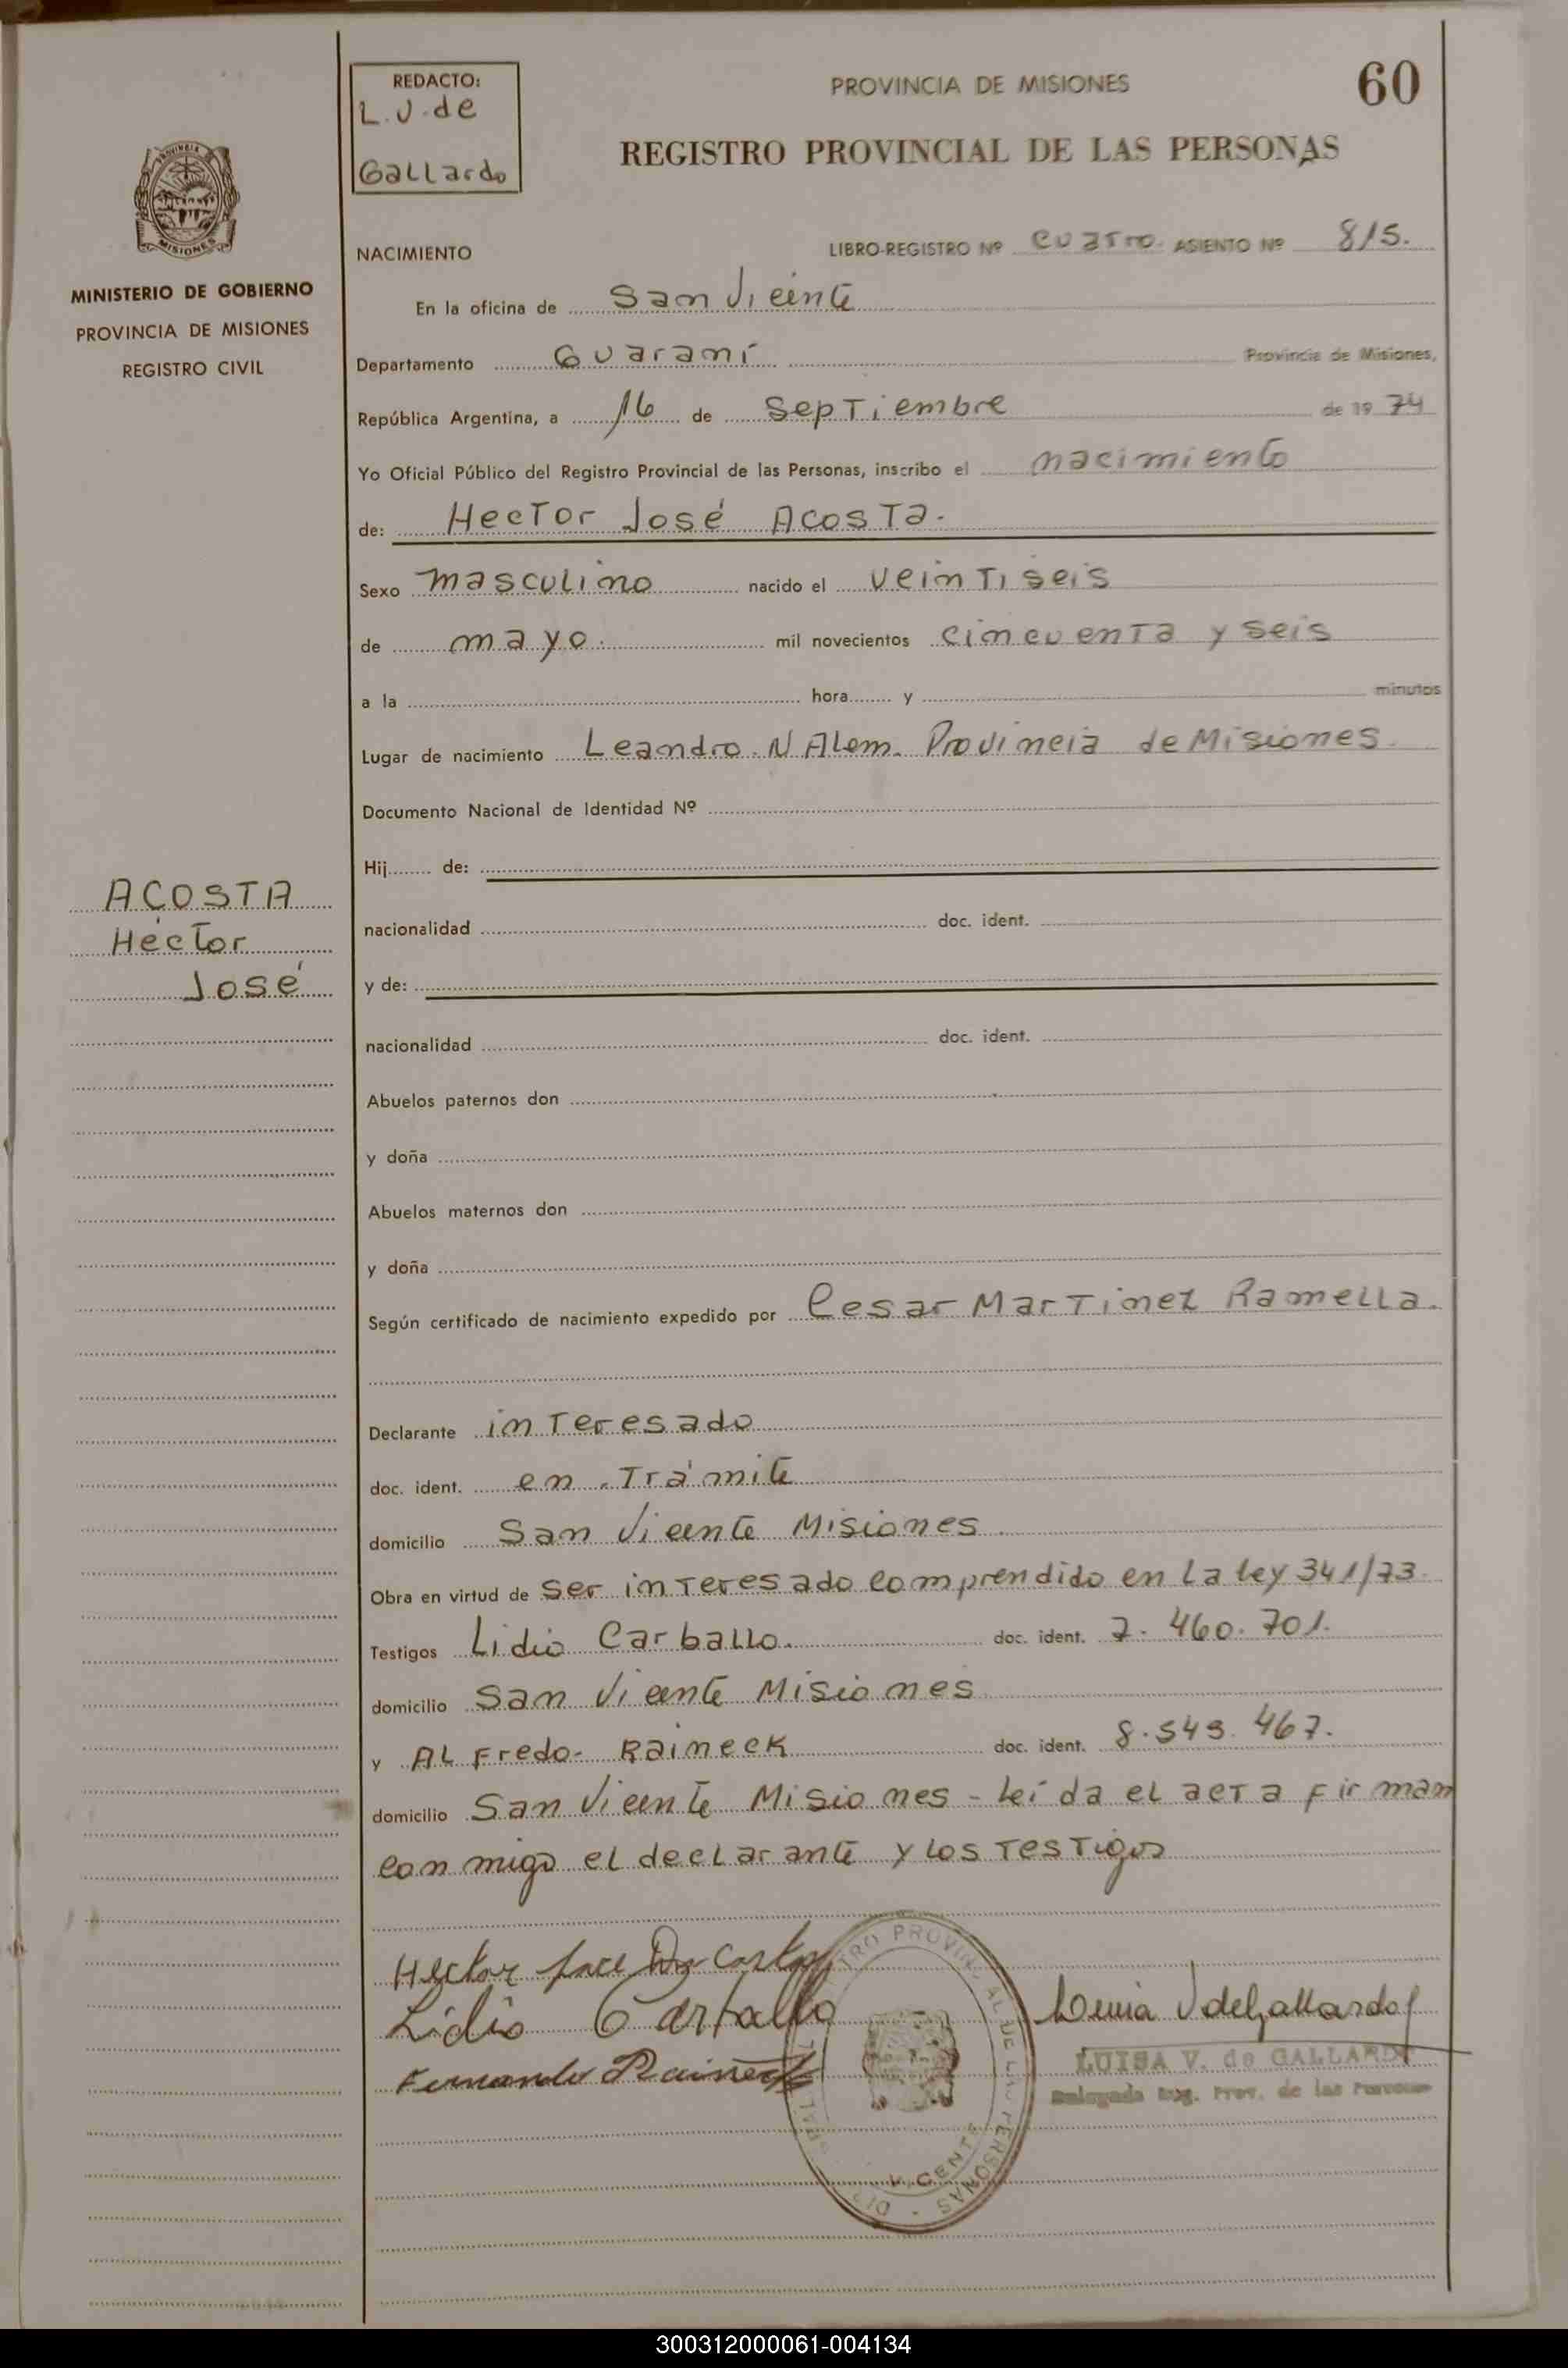 REDACTO:
L.V. de
Gallardo
PROVINCIA DE MISIONES
60
REGISTRO PROVINCIAL DE LAS PERSONAS
PROVINCIA
MISIONES
MINISTERIO DE GOBIERNO
PROVINCIA DE MISIONES
REGISTRO CIVIL
NACIMIENTO
LIBRO-REGISTRO Nº cuatro. ASIENTO Nº 815.
En la oficina de San Vicente
Departamento Guaraní Provincia de Misiones,
República Argentina, a 16 de Septiembre de 1974
Yo Oficial Público del Registro Provincial de las Personas, inscribo el nacimiento
de: Hector José Acosta.
Sexo masculino nacido el veintiseis
de mayo. mil novecientos cincuenta y seis
a la hora y minutos
Lugar de nacimiento Leandro. N Alem. Provincia de Misiones.
Documento Nacional de Identidad Nº
Hij de:
ACOSTA
Héctor
José
nacionalidad doc. ident.
y de:
nacionalidad doc. ident.
Abuelos paternos don
y doña
Abuelos maternos don
y doña
Según certificado de nacimiento expedido por Cesar Martinez Ramella.
Declarante interesado
doc. ident. en trámite
domicilio San Vicente Misiones
Obra en virtud de ser interesado comprendido en La Ley 341/73.
Testigos Lidio Carballo. doc. ident. 7.460.701.
domicilio San Vicente Misiones
y Alfredo- Raineck doc. ident. 8.543.467.
domicilio San Vicente Misiones - Leída el acta firman
conmigo el declarante y los testigos
Hector
Lidio Carballo
Fernando Raineck
V. de Gallardo
LUISA V. de GALLARDO
Delegada Reg. Prov. de las Personas
REGISTRO PROVINCIAL DE LAS PERSONAS
VICENTE
300312000061-004134